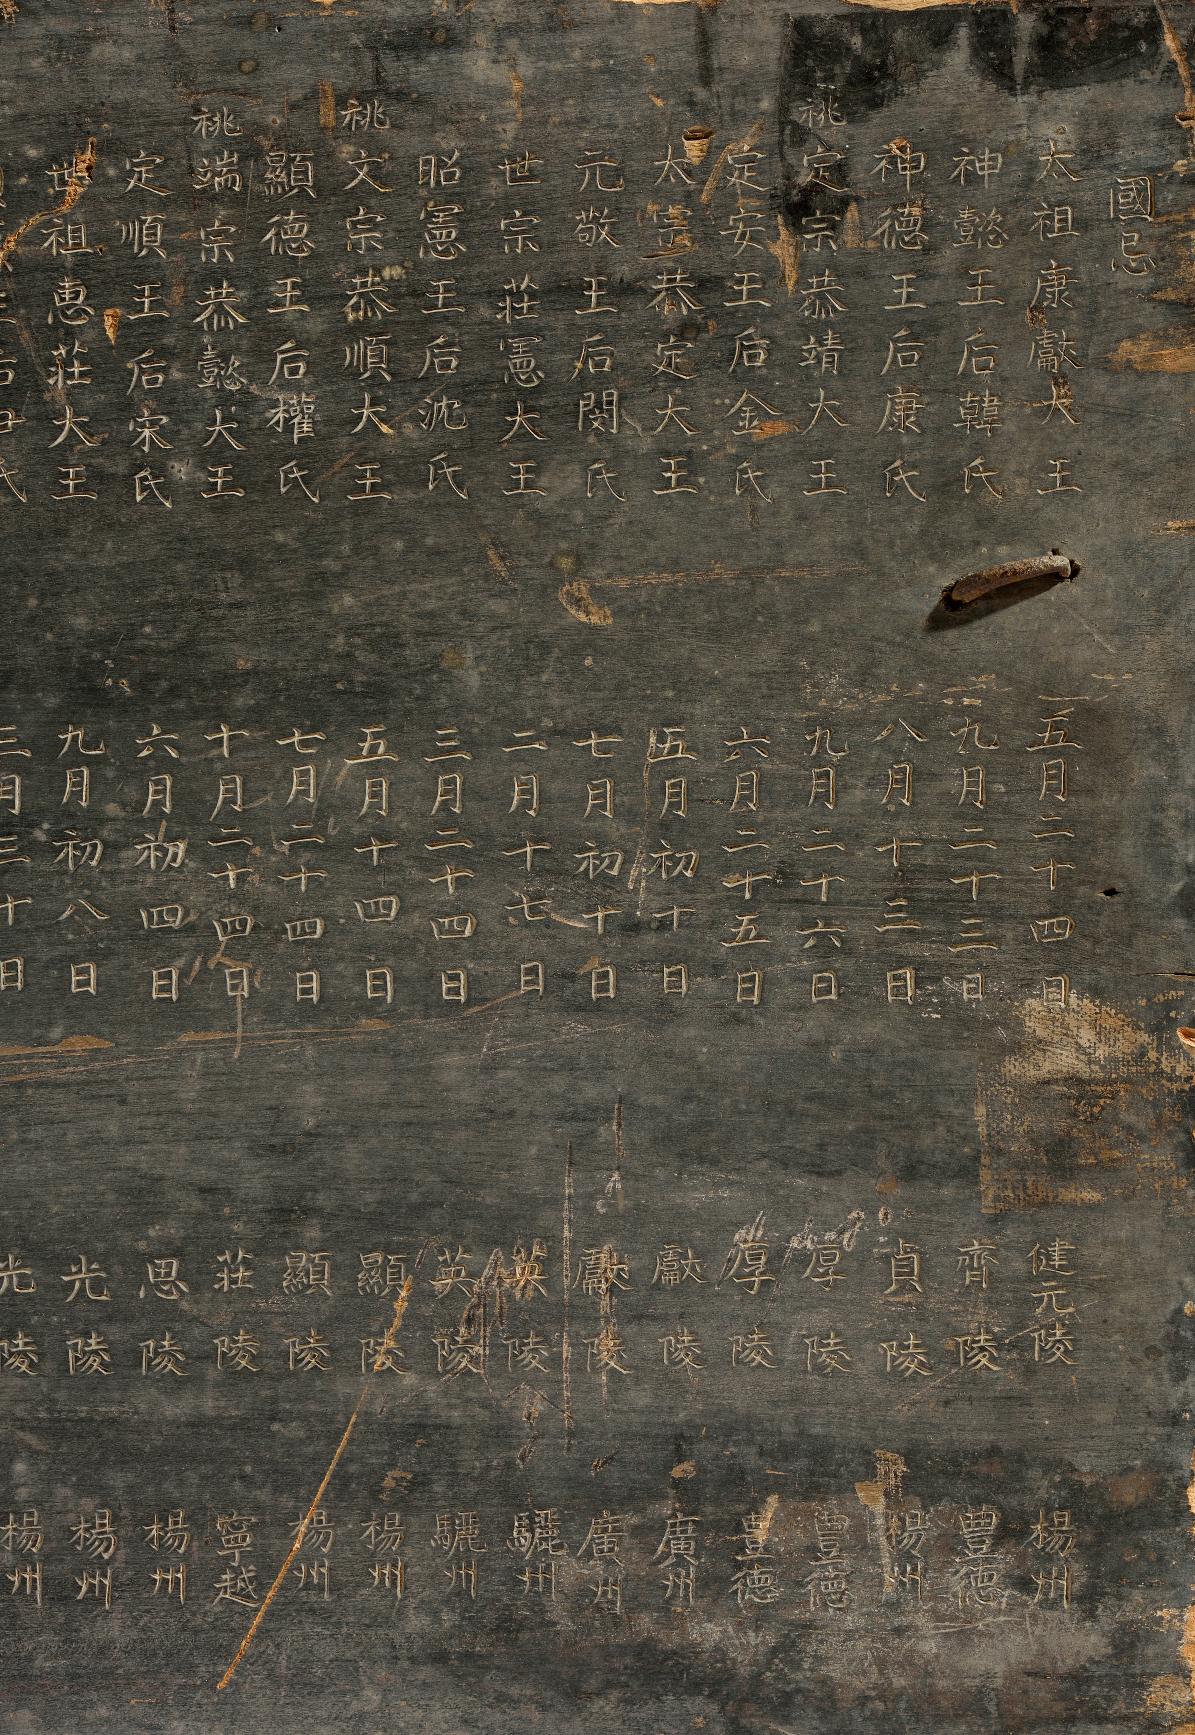 國忌
太祖康獻大王 五月二十四日 健元陵 楊州
神懿王后韓氏 九月二十三日 齊陵 豊德
神德王后康氏 八月十三日 貞陵 楊州
祧 定宗恭靖大王 九月二十六日 厚陵 豊德
定安王后金氏 六月二十五日 厚陵 豊德
太宗恭定大王 五月初十日 獻陵 廣州
元敬王后閔氏 七月初十日 獻陵 廣州
世宗莊憲大王 二月十七日 英陵 驪州
昭憲王后沈氏 三月二十四日 英陵 驪州
祧 文宗恭順大王 五月十四日 顯陵 楊州
顯德王后權氏 七月二十四日 顯陵 楊州
祧 端宗恭懿大王 十月二十四日 莊陵 寧越
定順王后宋氏 六月初四日 思陵 楊州
世祖惠莊大王 九月初八日 光陵 楊州
王后尹氏 三月三十日 光陵 楊州